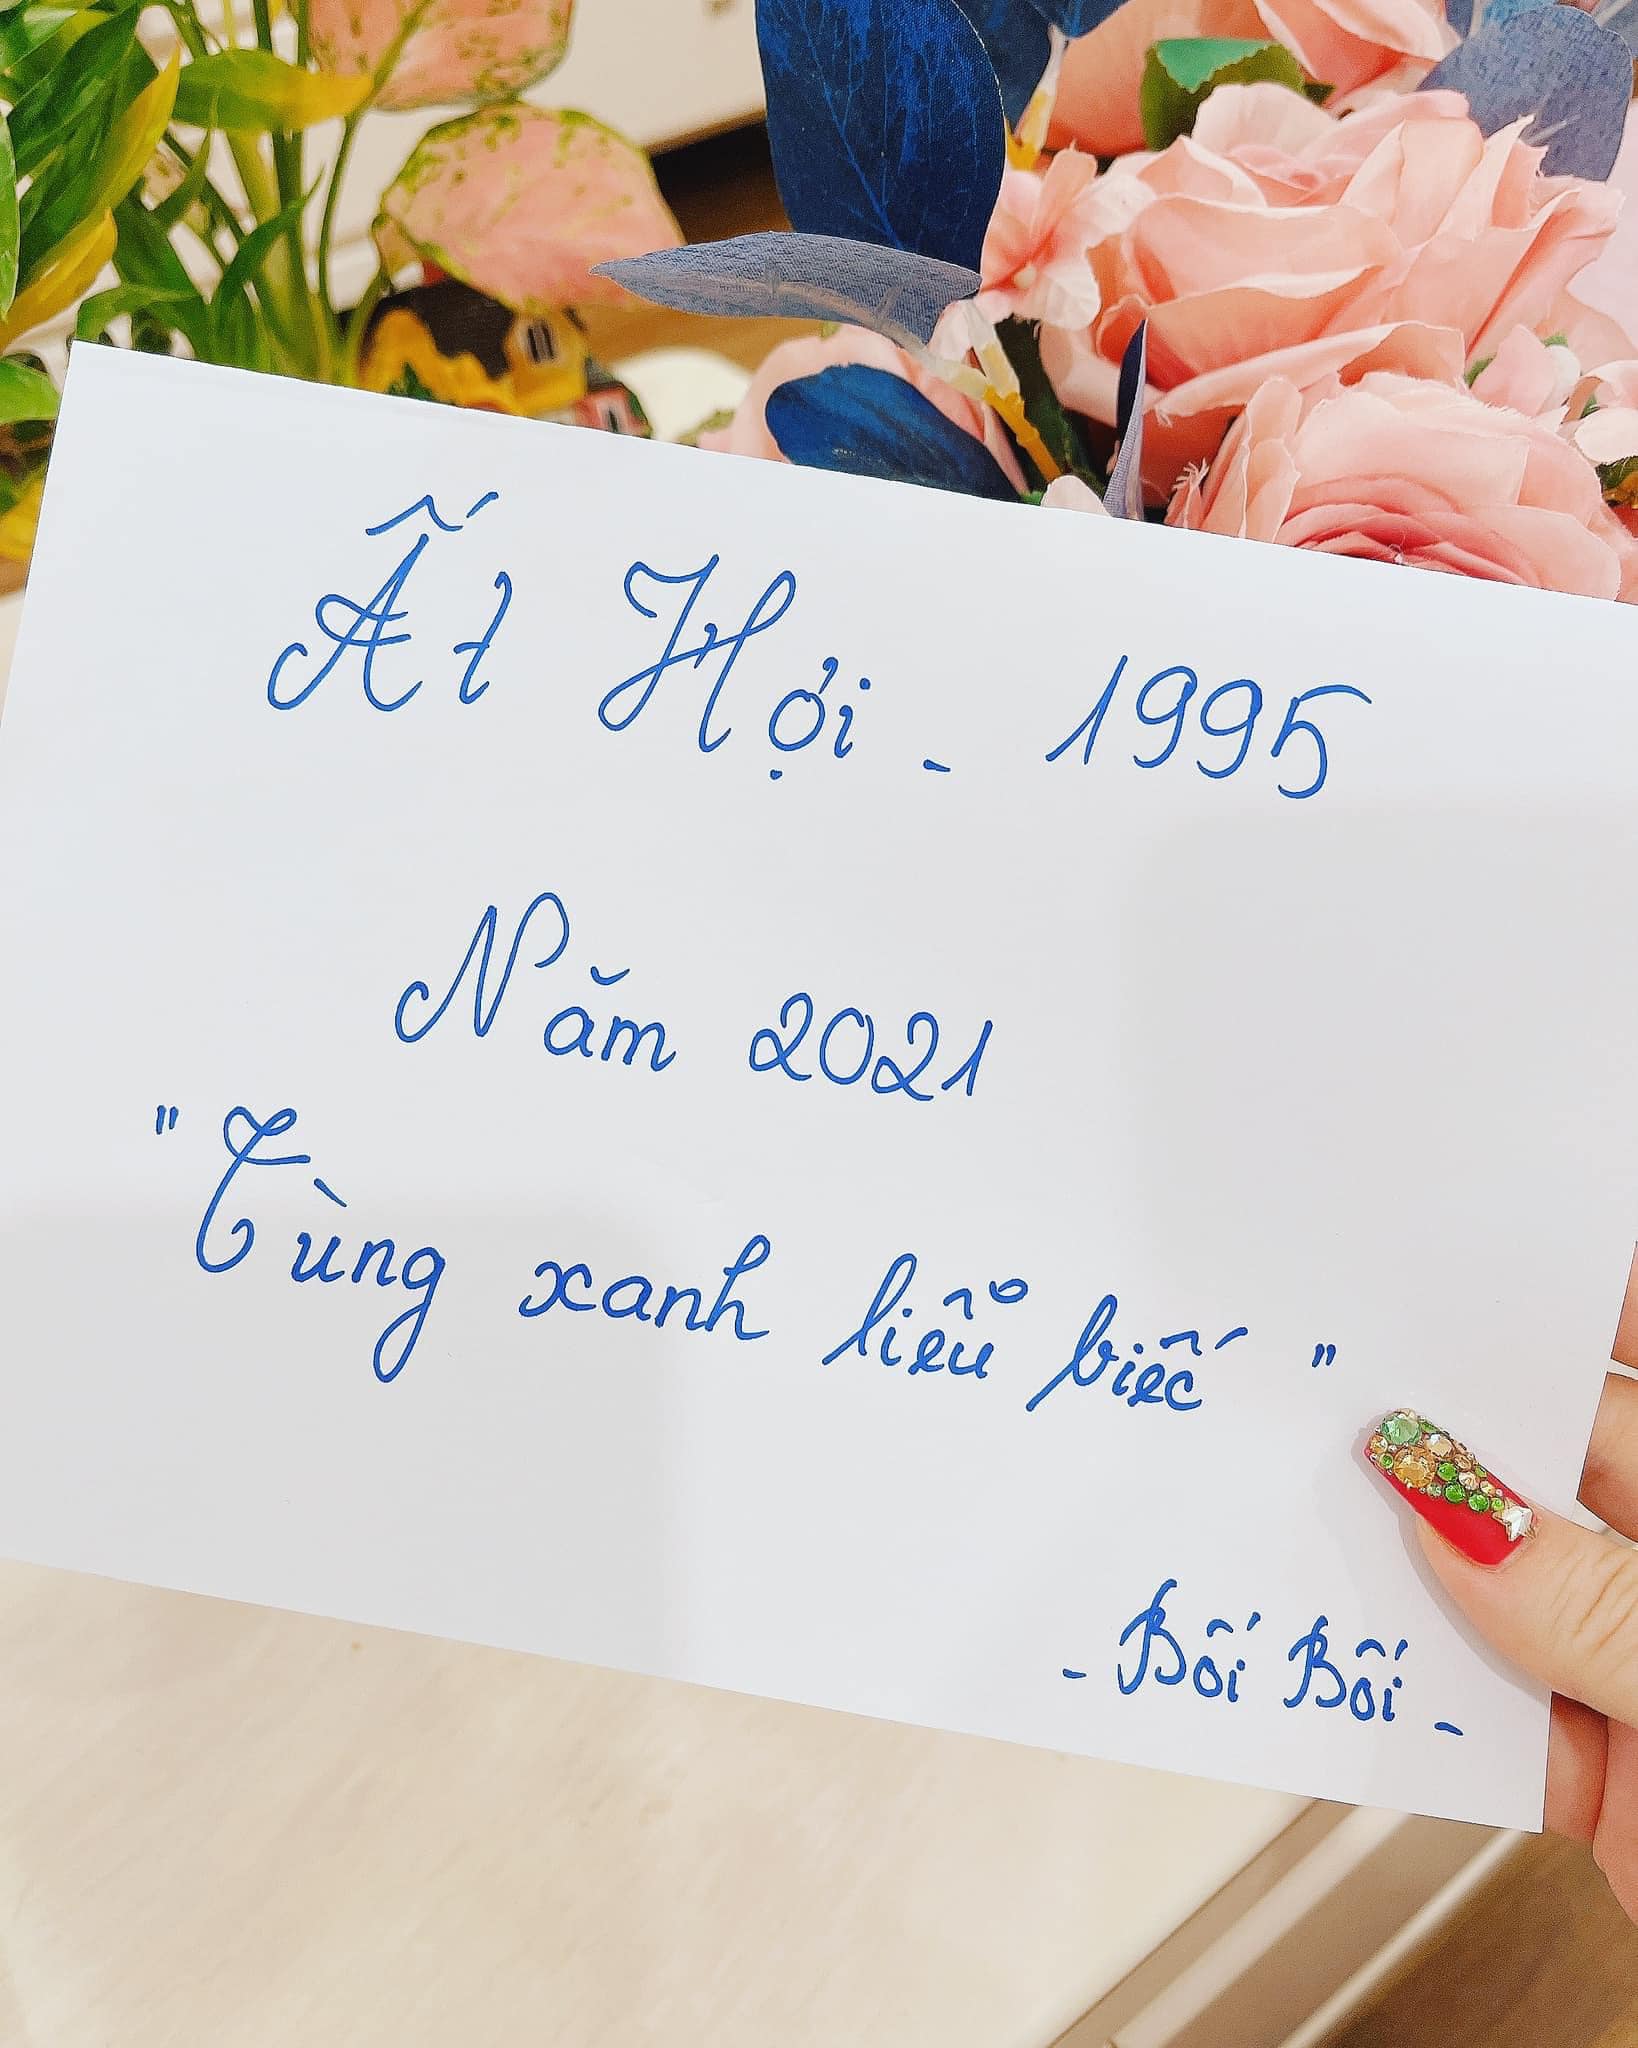 Ất Hợi - 1995
Năm 2021
"Tùng xanh liễu biếc"
- Bối Bối -